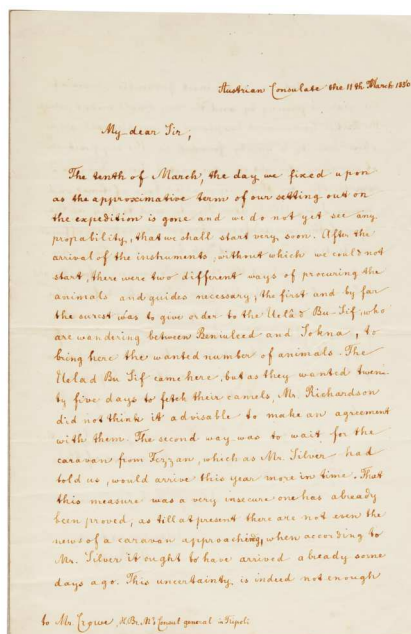 Austrian Consulate the 11th March 1850
My dear Sir,
The tenth of March, the day we fixed upon
as the approximative term of our setting out on
the expedition is gone and we do not yet see any
propability, that we shall start very soon. After the
arrival of the instruments, without which we could not
start, there were two different ways of procuring the
animals and guides necessary; the first and by far
the surest was to give order to the Uelad Bu-Sif, who
are wondering between Beniuleed and Sokna, to
bring here the wanted number of animals. The
Uelad Bu Sif came here, but as they wanted twen-
ty five days to fetch their camels, Mr. Richardson
did not think it advisable to make an agreement
with them. The second way was to wait for the
caravan from Fezzan, which as Mr. Silver had
told us, would arrive this year more in time. That
this measure was a very insecure one has already
been proved, as till at present there are not even the
news of a caravan approaching, when according to
Mr. Silver it ought to have arrived already some
days ago. This uncertainty, is indeed not enough
to Mr. Crowe, H. Br. M's Consul general in Tripoli